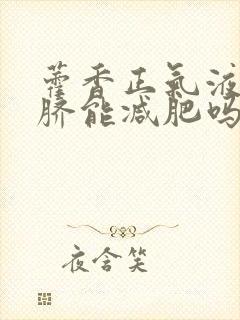 藿香正氣液
脐能减肥吗
夜含笑